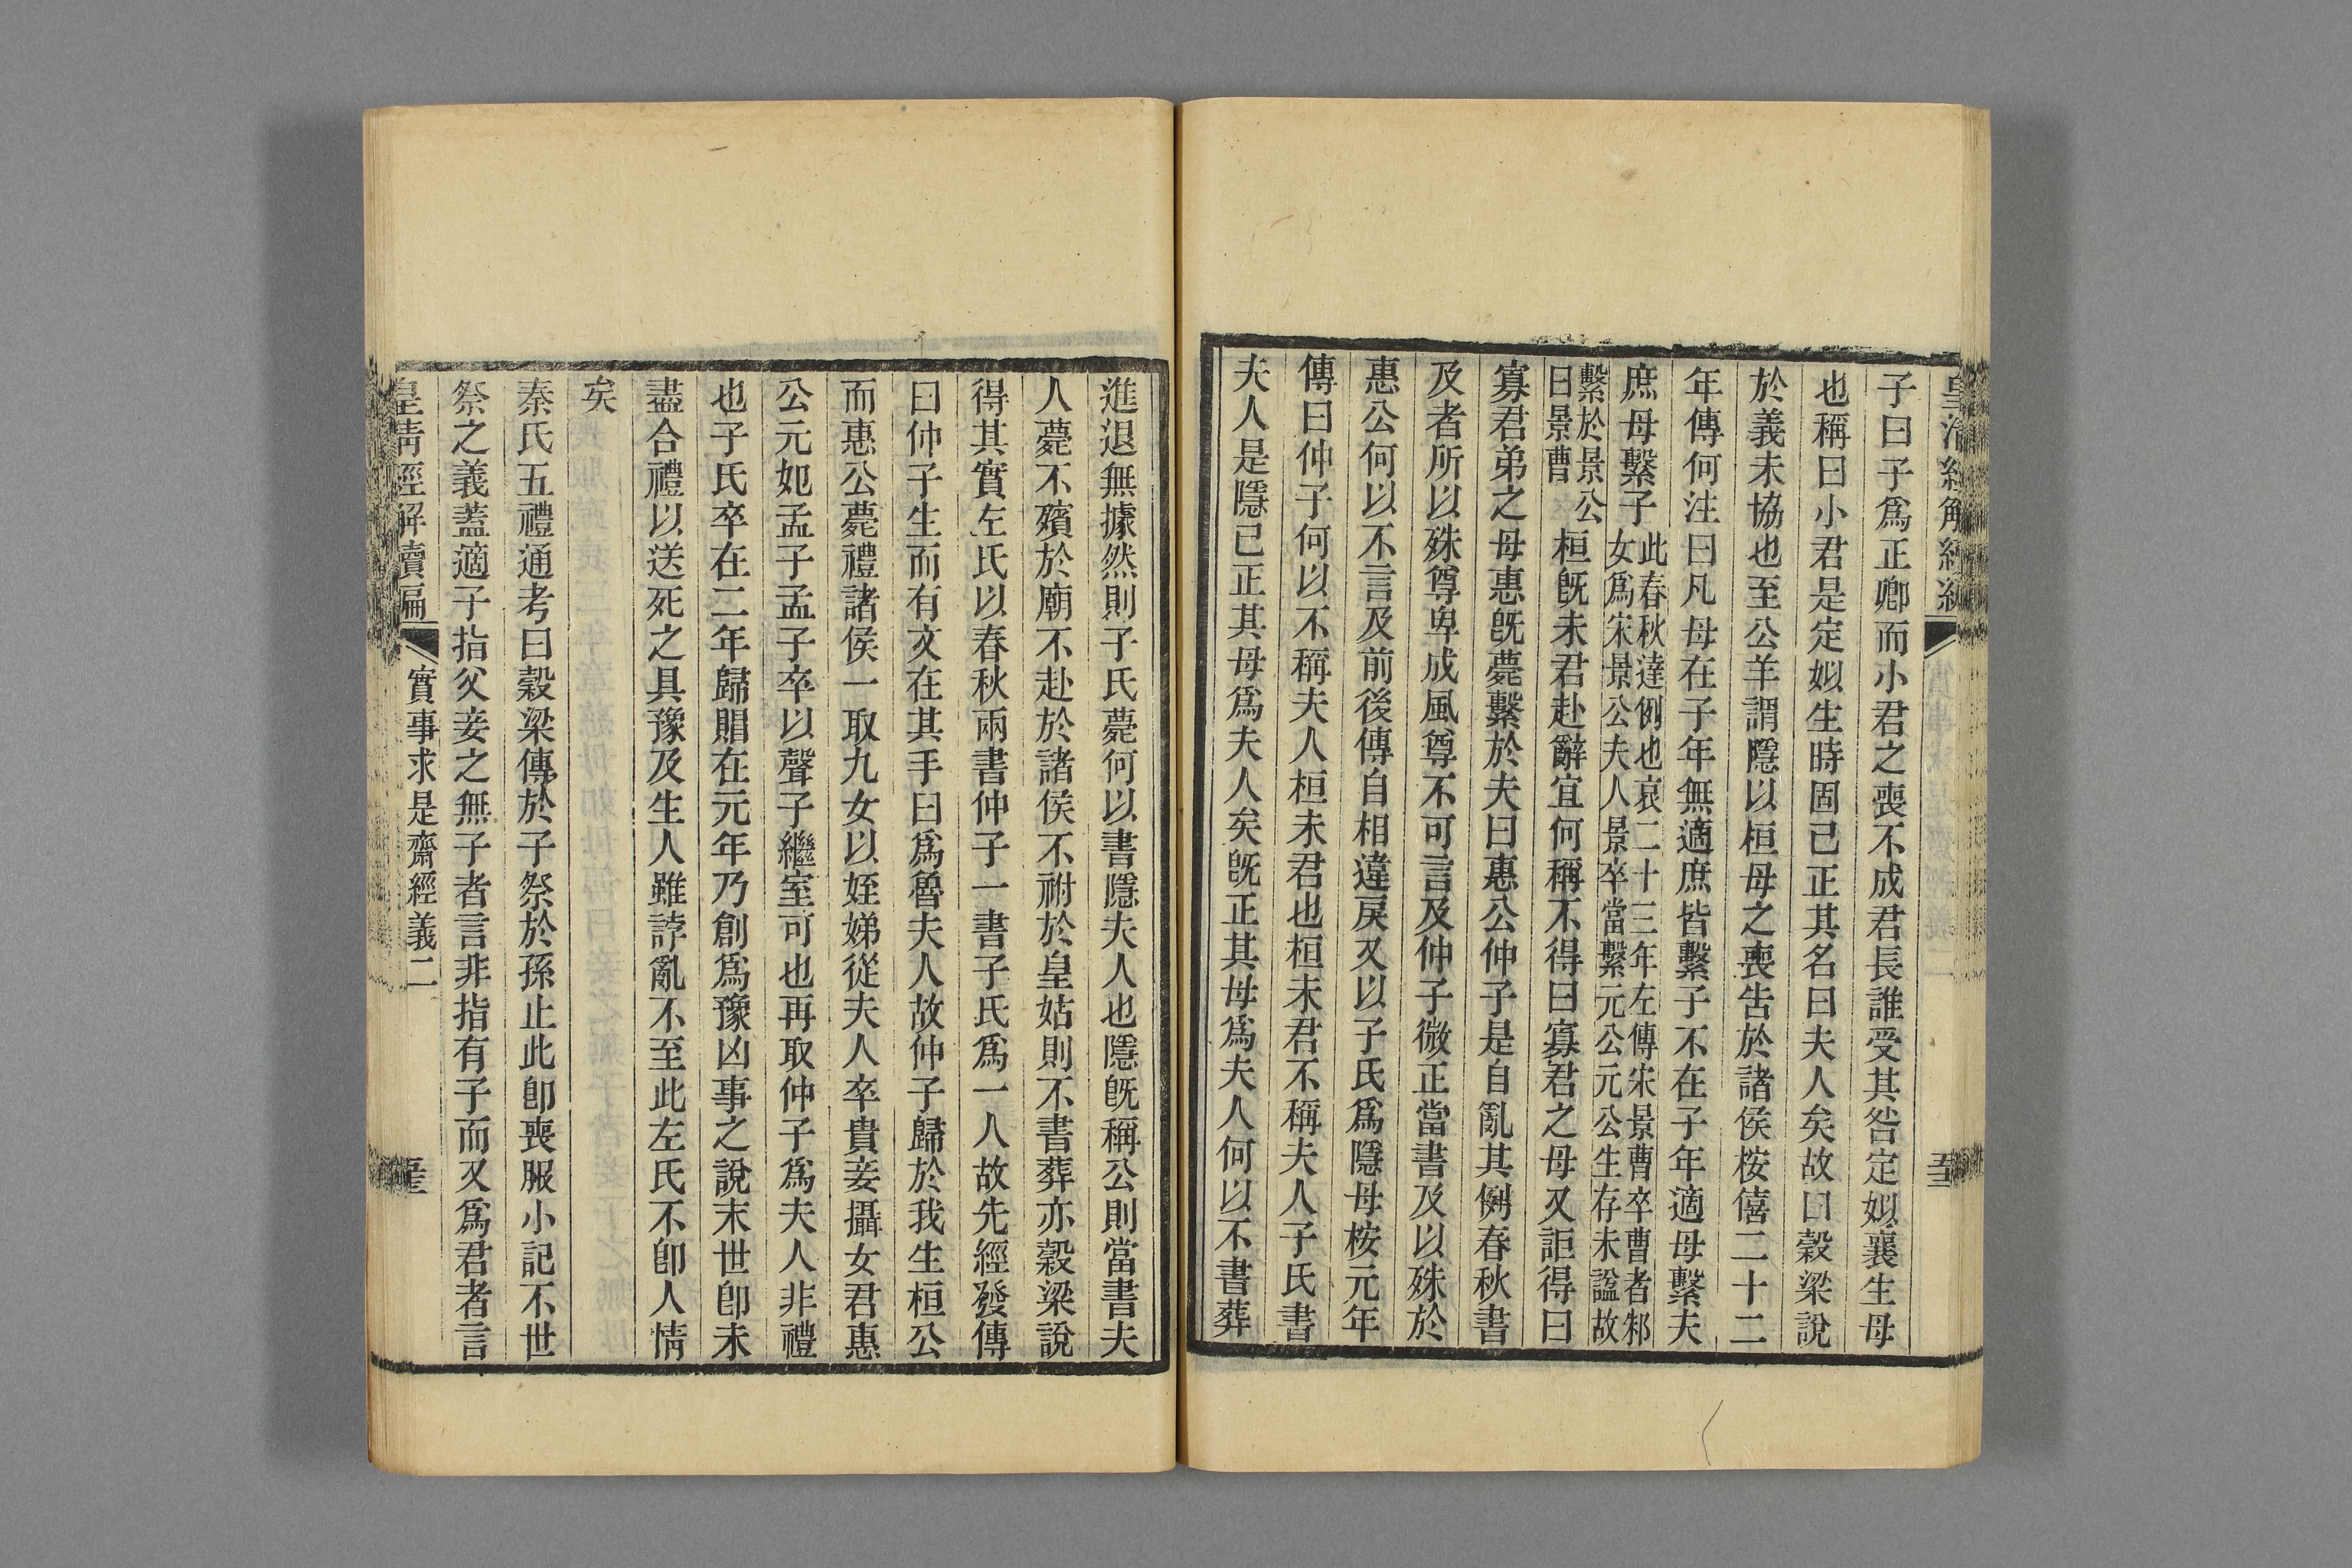 皇清經解續編
子曰子爲正卿而小君之喪不成君長誰受其咎定姒襄生母
也稱曰小君是定姒生時固已正其名曰夫人矣故曰穀梁說
於義未協也至公羊謂隱以桓母之喪告於諸侯桉僖二十二
年傳何注曰凡母在子年無適庶皆繫子不在子年適母繫夫
庶母繫子此春秋達例也哀二十三年左傳宋景曹卒曹者邾
女爲宋景公夫人景卒當繫元公元公生存未諡故
繫於景公
曰景曹
桓旣未君赴辭宜何稱不得曰寡君之母又詎得曰
寡君弟之母惠旣薨繫於夫曰惠公仲子是自亂其例春秋書
及者所以殊尊卑成風尊不可言及仲子微正當書及以殊於
惠公何以不言及前後傳自相違戾又以子氏爲隱母桉元年
傳曰仲子何以不稱夫人桓未君也桓未君不稱夫人子氏書
夫人是隱已正其母爲夫人矣旣正其母爲夫人何以不書葬
進退無據然則子氏薨何以書隱夫人也隱旣稱公則當書夫
人薨不殯於廟不赴於諸侯不祔於皇姑則不書葬亦穀梁說
得其實左氏以春秋兩書仲子一書子氏爲一人故先經發傳
曰仲子生而有文在其手曰爲魯夫人故仲子歸於我生桓公
而惠公薨禮諸侯一取九女以姪娣從夫人卒貴妾攝女君惠
公元妃孟子孟子卒以聲子繼室可也再取仲子爲夫人非禮
也子氏卒在二年歸賵在元年乃創爲豫凶事之說末世卽未
盡合禮以送死之具豫及生人雖誖亂不至此左氏不卽人情
矣
秦氏五禮通考曰穀梁傳於子祭於孫止此卽喪服小記不世
祭之義蓋適子指父妾之無子者言非指有子而又爲君者言
皇清經解續編
實事求是齋經義二